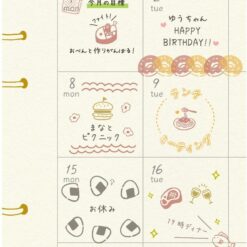 今月の目標
mon
ファイト!
おべんと作りがんばる!
ゆうちゃん
HAPPY
BIRTHDAY!!
8
mon
まなと
ピクニック
9
tue
ランチ
ミーティング
15
mon
お休み
16
tue
19時ディナー